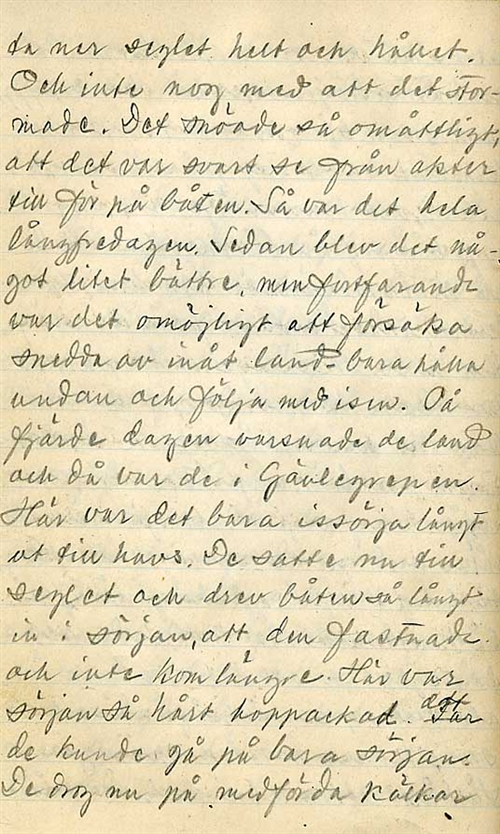 ta ner seglet helt och hållet.
Och inte nog med att det stor-
made. Det snöade så omåttligt,
att det var svart se från akter
till för på båten. Så var det hela
långfredagen. Sedan blev det nå-
got litet bättre, men fortfarande
var det omöjligt att försöka
snedda av inåt land - bara hålla
undan och följa med isen. På
fjärde dagen varsnade de land
och då var de i Gävlegrepen.
Här var det bara issörja långt
ut till havs. De satte nu till
seglet och drev båten så långt
in i sörjan, att den fastnade
och inte kom längre. Här var
sörjan så hårt hoppackad. att
de kunde gå på bara sörjan.
De drog nu på medförda kälkar